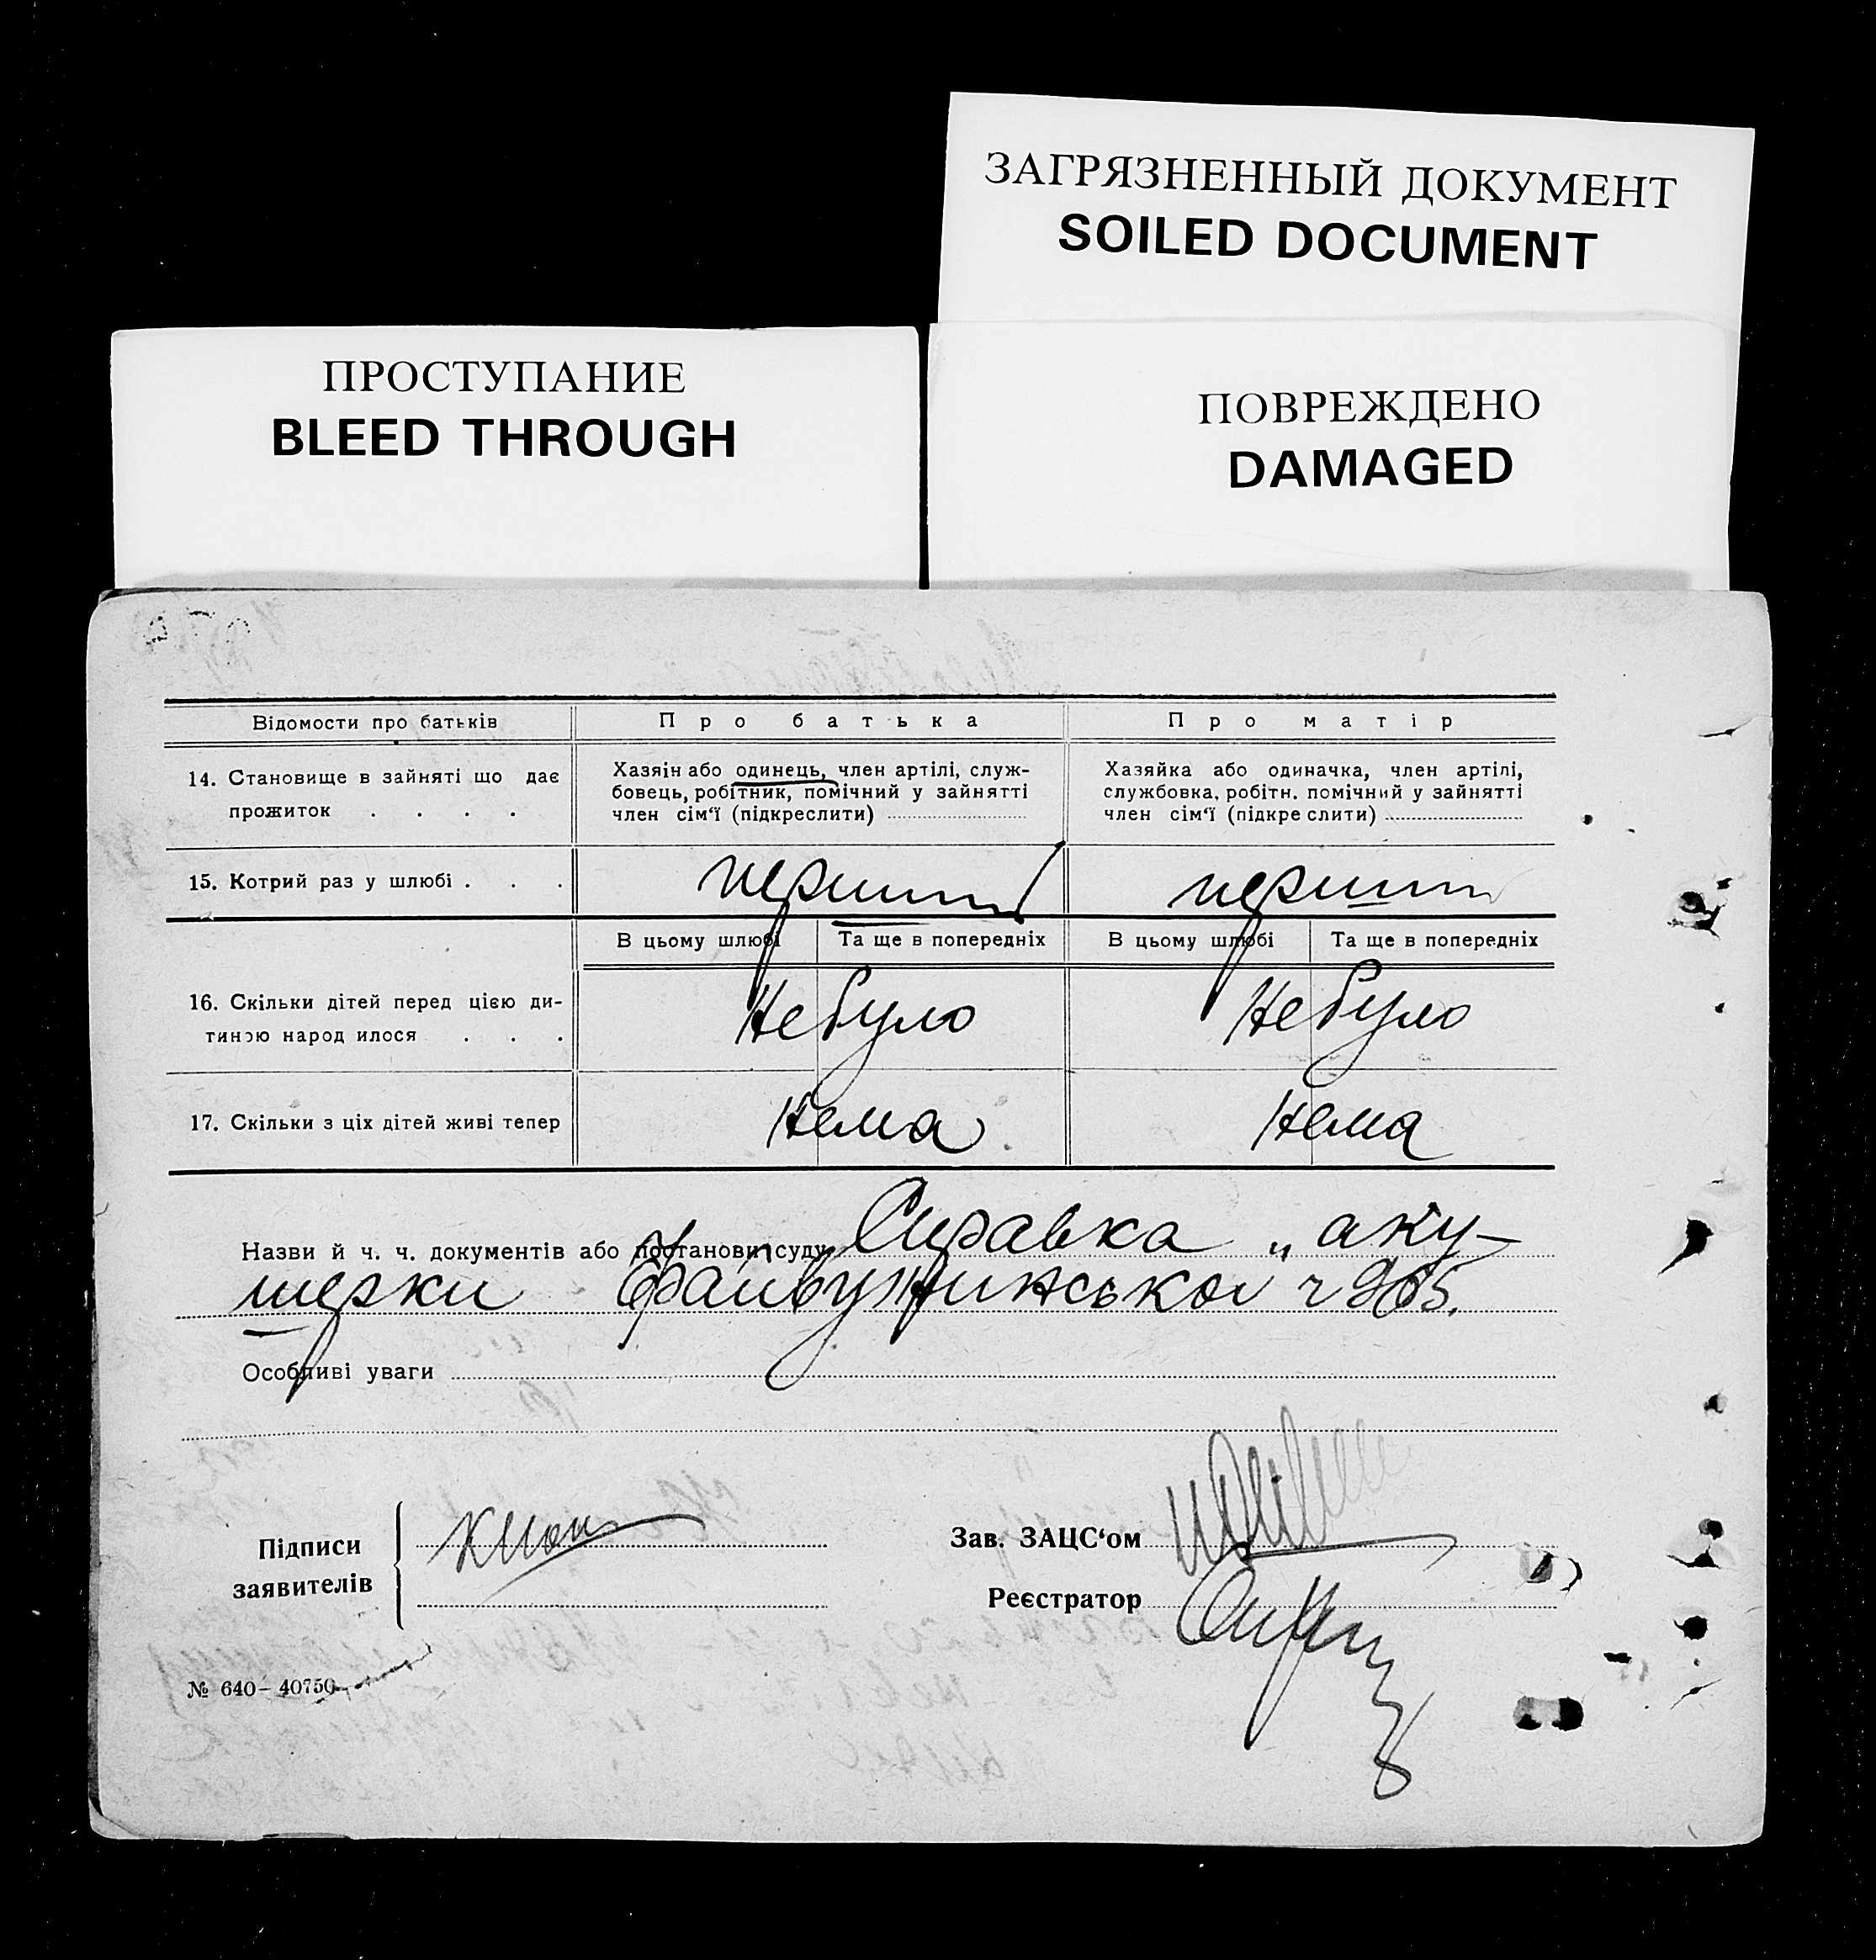 ЗАГРЯЗНЕННЫЙ ДОКУМЕНТ
SOILED DOCUMENT
ПРОСТУПАНИЕ
BLEED THROUGH
ПОВРЕЖДЕНО
DAMAGED
Відомости про батьків
Про батька
Про матір
14. Становище в зайняті що дає
прожиток . . . .
Хазяін або одинець, член артілі, служ-
бовець, робітник, помічний у зайнятті
член сім‘ї (підкреслити)
Хазяйка або одиначка, член артілі,
службовка, робітн. помічний у зайнятті
член сім‘ї (підкреслити)
15. Котрий раз у шлюбі . . .
перший
перший
В цьому шлюбі
Та ще в попередніх
В цьому шлюбі
Та ще в попередніх
16. Скільки дітей перед цією ди-
тиною народилося . . .
Небуло
Небуло
17. Скільки з ціх дітей живі тепер
Нема
Нема
Назви й ч. ч. документів або постанови суду Справка „ аку-
шерки ч 965.
Особливі уваги
Підписи
заявителів
Зав. ЗАЦС‘ом
Реєстратор
№ 640-40750